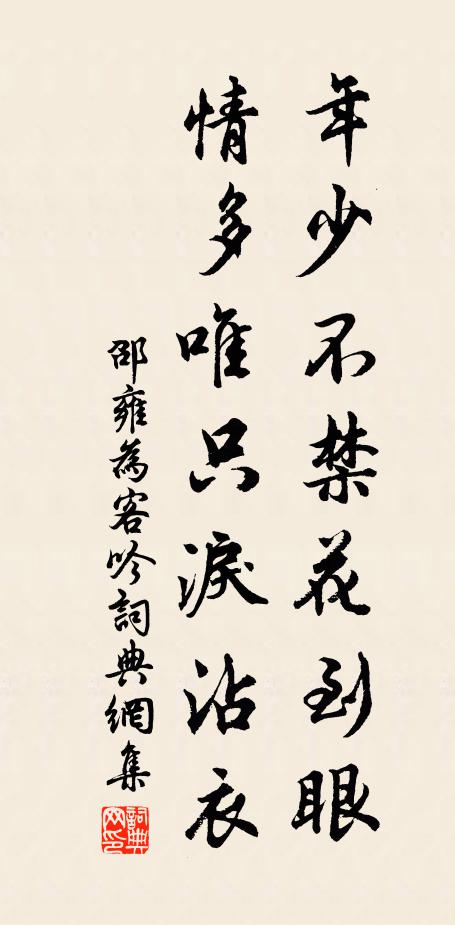 年少不禁花到眼
情多唯只淚沾衣
邵雍為客吟詞典網集
詞典網印